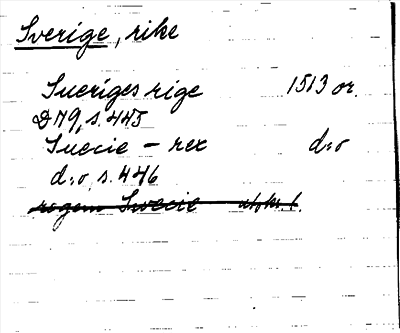 Sverige, rike
Sueriges rige 1513 or.
D 79, s. 445
Suecie - rex d:o
d:o, s. 446
regem Swecie